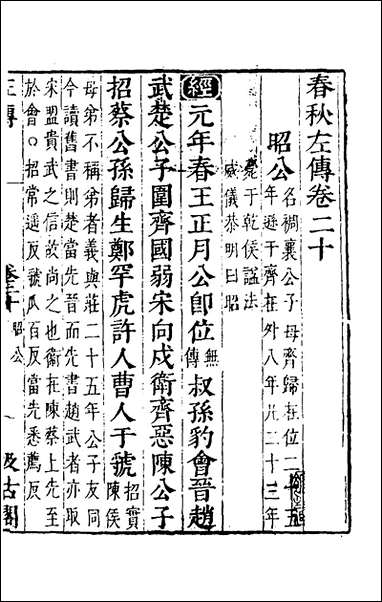 春秋左傳卷二十
昭公 名裯襄公子母齊歸在位二十五
年遜于齊在外八年凡二十三年
薨于乾侯謚法
威儀恭明曰昭
經元年春王正月公卽位 無傳 叔孫豹會晉趙
武楚公子圍齊國弱宋向戌衛齊惡陳公子
招蔡公孫歸生鄭罕虎許人曹人于虢 招實陳侯
母弟不稱弟者義與莊二十五年公子友同
今讀舊書則楚當先晉而先書趙武者亦取
宋盟貴武之信故尚之也衛在陳蔡上先至
於會○招常遥反虢瓜百反當先悉薦反
左傳 卷二十 昭公 汲古閣